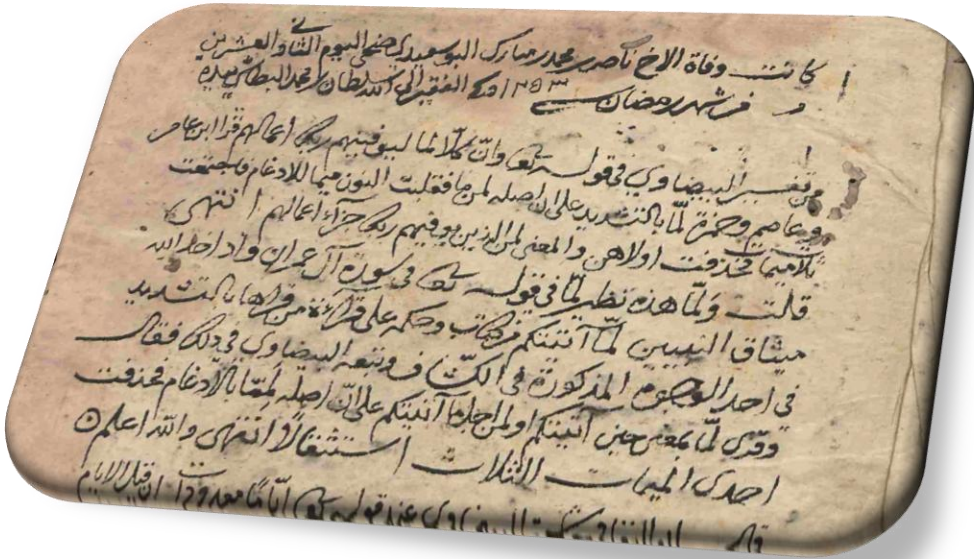 كانت وفاة الاخ ناصر بن محمد بن مبارك البوسعيدي ضحى اليوم الثاني والعشرين
من شهر رمضان سنة ١٢٥٣ وكتبه الفقير الى الله سلطان بن محمد البطاشي بيده
من تفسير البيضاوي في قوله تعالى وان كلا لما ليوفينهم ربك أعمالهم قرا ابن عامر
وعاصم وحمزة لمّا بالتشديد على ان اصله لمن ما فقلبت النون ميما للادغام فاجتمعت
ثلاث ميمات فحذفت اولاهن والمعنى لمن الذين يوفينهم ربك جزآء اعمالهم انتهى
قلت ولمّا هذه نظير لمّا في قوله تعالى في سورة آل عمران واذ اخذ الله
ميثاق النبيين لمّا آتيتكم من كتاب وحكم على قرآءة من قراها بالتشديد
في احد الوجوه المذكورة في الكشاف وتبعه البيضاوي في ذلك فقال
وقرئ لمّا بمعنى حين آتيتكم او لمن اجل ما آتيتكم على انّ اصله لمن ما بالادغام فحذفت
احدى الميمات الثلاث استثقالا انتهى والله اعلم
البيضاوي عند قوله تعالى أيّامًا معدودات